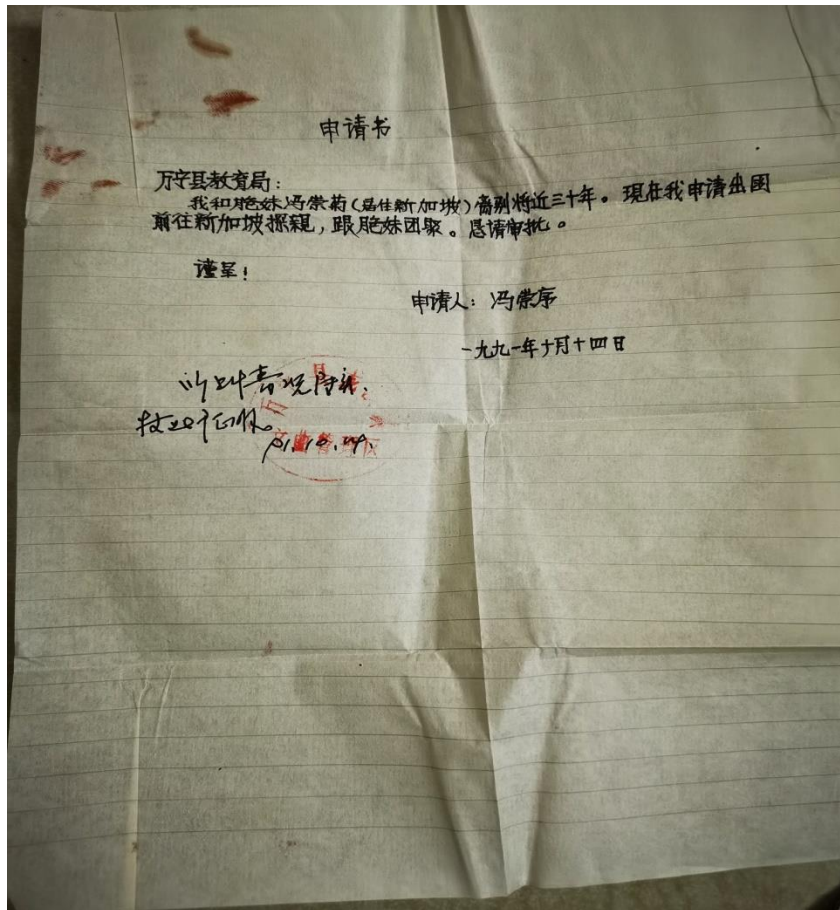 申请书
万宁县教育局：
我和胞妹冯崇菊（居住新加坡）离别将近三十年。现在我申请出国
前往新加坡探親，跟胞妹团聚。恳请审批。
谨呈！
申请人：冯崇序
一九九一年十月十四日
所以 情况属实，
91.10.14.
管 区